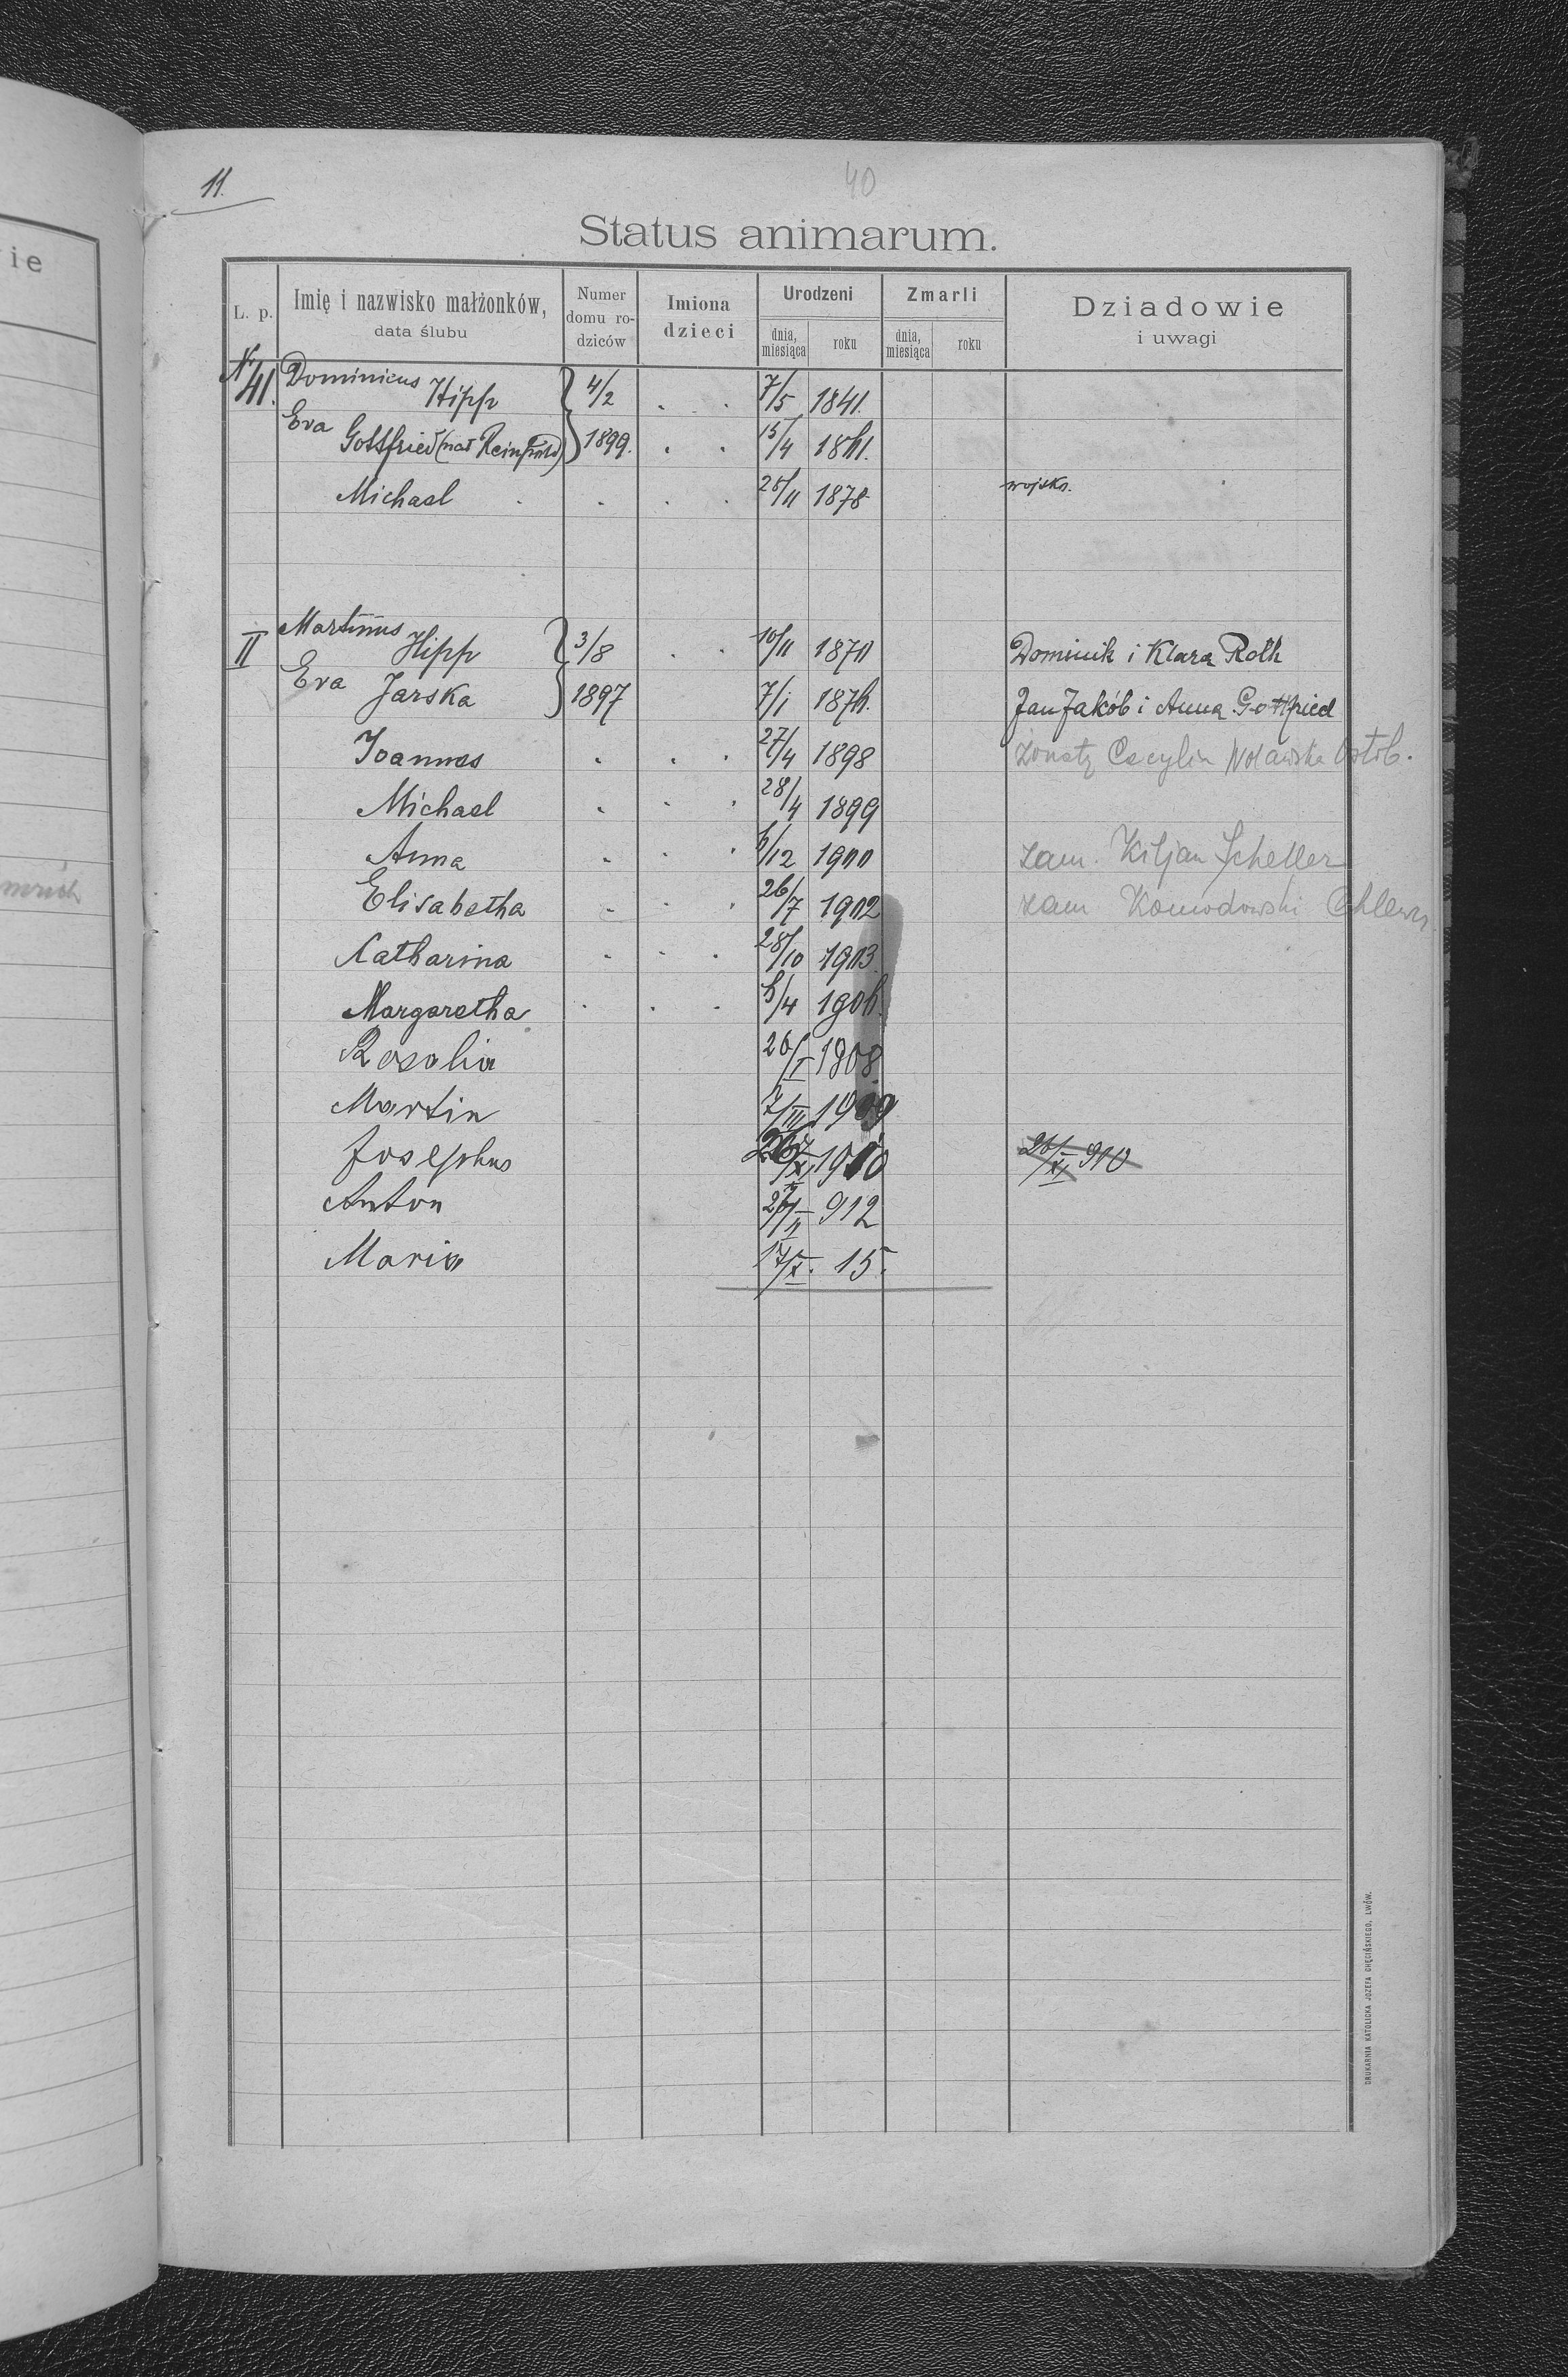 ie
11.
40
Status animarum.
L. p.
Imię i nazwisko małżonków,
data ślubu
Numer
domu ro-
dziców
Imiona
dzieci
Urodzeni
dnia,
miesiąca
roku
Zmarli
dnia,
miesiąca
roku
Dziadowie
i uwagi
Nr 41. Dominicus Hipp 4/2 7/5 1841.
Eva Gottfried (nat Reinpold) 1899. 15/4
Michael 25/11 1878 wojsko.
II Martinus Hipp 3/8 10/11 1870 Dominik i Klara Roth
Eva Jarska 1897 7/1 Jan Jakób i Anna Gottfried
Joannes 27/4 1898 żonaty Cecylia
Michael 28/4 1899
Anna 1900 zam. Kiljan Scheller
Elisabetha 26/7 1902 zam Komodowski
Catharina 28/10 1903.
Margaretha
Rosalia 26/I 1908
Martin 7/III 1909
Josephus 1910 26/XI 910
Anton 912
Maria 17/X. 15.
DRUKARNIA KATOLICKA JÓZEFA CHĘCIŃSKIEGO, LWÓW.